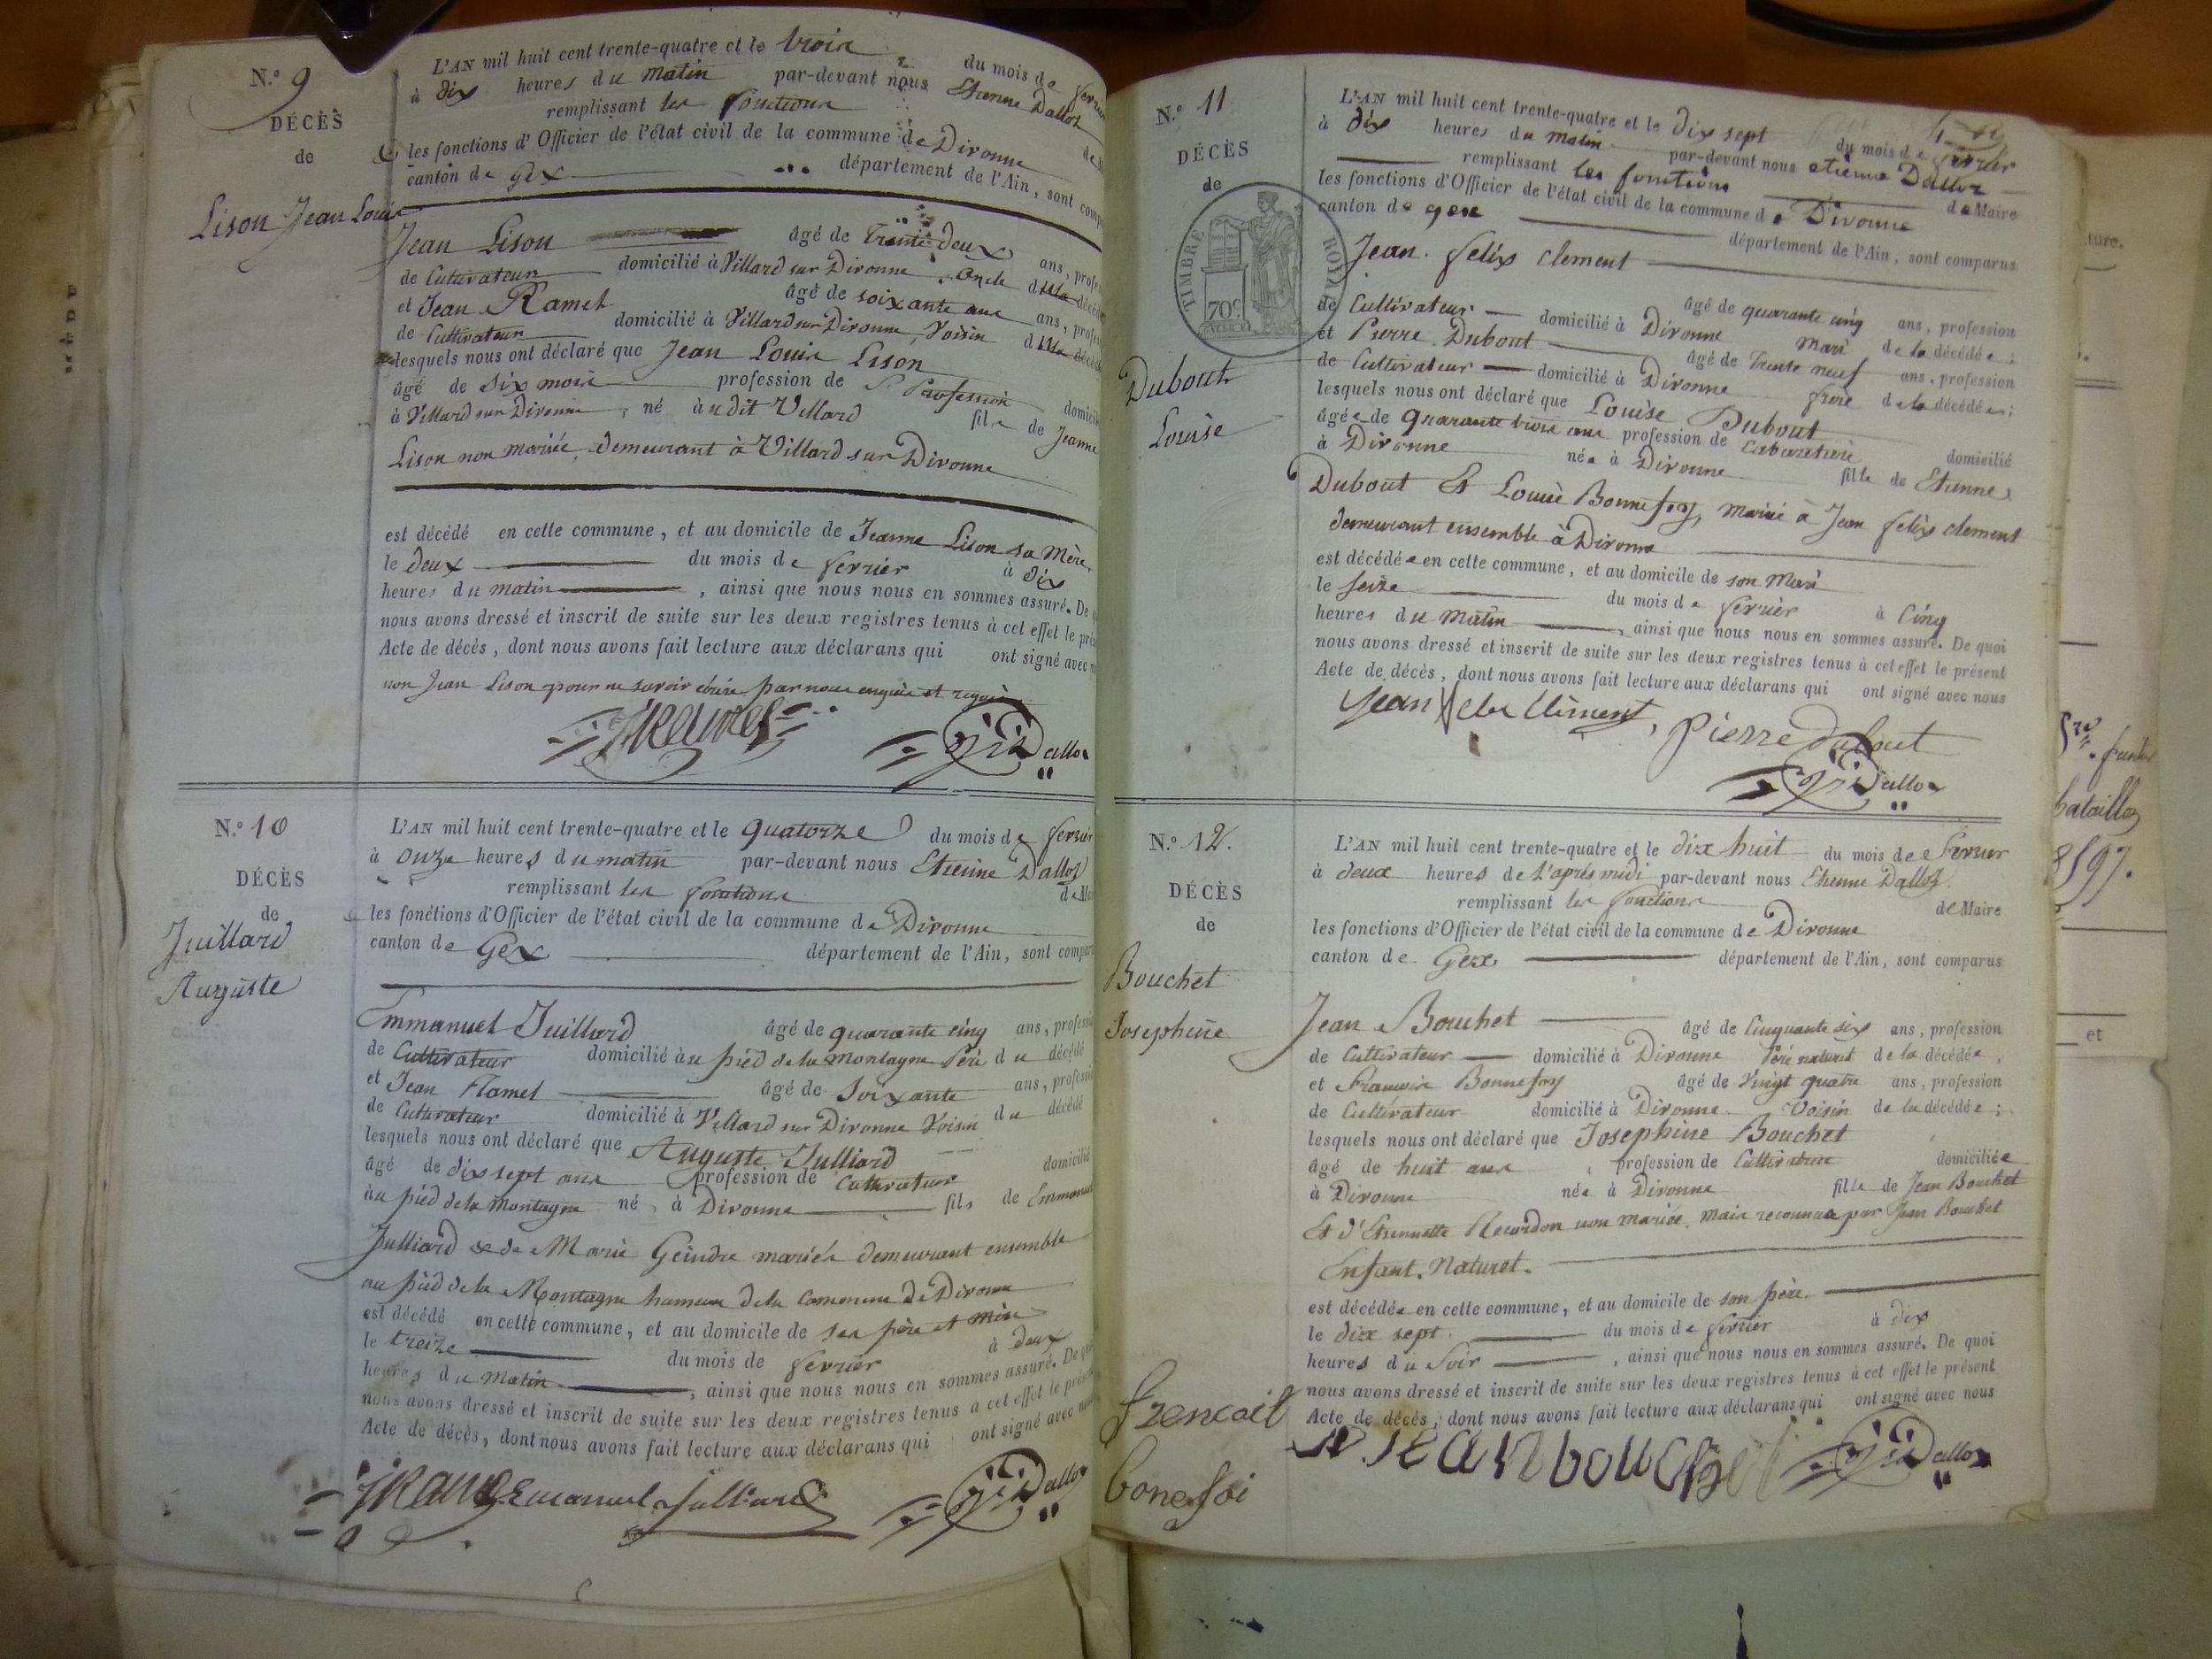 N.° 9
DÉCÈS
de
Lison Jean Louis
L'AN mil huit cent trente-quatre et le trois du mois de fevrier
à dix heures du matin par-devant nous Etienne Dalloz
remplissant les fonctions de
les fonctions d'Officier de l'état civil de la commune de Divonne
canton de Gex département de l'Ain, sont comp
Jean Lison âgé de trente deux ans, profes
de Cultivateur domicilié à Villard sur Divonne, oncle du décédé
et Jean Ramel âgé de soixante ans ans, profes
de Cultivateur domicilié à Villard sur Divonne, Voisin du décédé
lesquels nous ont déclaré que Jean Louis Lison
âgé de six mois profession de S. Profession domicilié
à Villard sur Divonne, né au dit Villard fils de Jeanne
Lison non mariée, demeurant à Villard sur Divonne
est décédé en cette commune, et au domicile de Jeanne Lison sa Mère
le deux du mois de fevrier à dix
heures du matin, ainsi que nous nous en sommes assuré. De q
nous avons dressé et inscrit de suite sur les deux registres tenus à cet effet le prés
Acte de décès, dont nous avons fait lecture aux déclarans qui ont signé avec n
non Jean Lison pour ne savoir écrire par nous enquis et requis
JRamel Dalloz
N.° 10
DÉCÈS
de
Juillard
Auguste
L'AN mil huit cent trente-quatre et le quatorze du mois de fevrier
à onze heures du matin par-devant nous Etienne Dalloz
remplissant les fonctions de Ma
les fonctions d'Officier de l'état civil de la commune de Divonne
canton de Gex département de l'Ain, sont compar
Emmanuel Juillard âgé de quarante cinq ans, professi
de Cultivateur domicilié au pied de la montagne Père du décédé
et Jean Ramel âgé de soixante ans, professi
de Cultivateur domicilié à Villard sur Divonne Voisin du décédé
lesquels nous ont déclaré que Auguste Julliard
âgé de dix sept ans profession de Cultivateur domicilié
au pied de la montagne né à Divonne fils de Emmanuel
Julliard & de Marie Geindre mariés demeurant ensemble
au pied de la Montagne hameau de la Commune de Divonne
est décédé en cette commune, et au domicile de ses père et mère
le treize du mois de fevrier à deux
heures du matin, ainsi que nous nous en sommes assuré. De qu
nous avons dressé et inscrit de suite sur les deux registres tenus à cet effet le prése
Acte de décès, dont nous avons fait lecture aux déclarans qui ont signé avec nou
JRamel Emanuel Julliard Dalloz
N.° 11
DÉCÈS
de
TIMBRE ROYAL
70c
Dubout
Louise
L'AN mil huit cent trente-quatre et le dix sept du mois de fevrier
à dix heures du matin par-devant nous etienne Dalloz
remplissant les fonctions de Maire
les fonctions d'Officier de l'état civil de la commune de Divonne
canton de gex département de l'Ain, sont comparus
Jean felix clement
âgé de quarante cinq ans, profession
de Cultivateur domicilié à Divonne mari de la décédée;
et Pierre Dubout âgé de trente neuf ans, profession
de Cultivateur domicilié à Divonne frere de la décédée;
lesquels nous ont déclaré que Louise Dubout
âgée de quarante trois ans profession de Cabaretiere domicilié
à Divonne née à Divonne fille de Etienne
Dubout Et Louise Bonnefoy, mariée à Jean felix clement
demeurant ensemble à Divonne
est décédée en cette commune, et au domicile de son Mari
le seize du mois de fevrier à Cinq
heures du matin, ainsi que nous nous en sommes assuré. De quoi
nous avons dressé et inscrit de suite sur les deux registres tenus à cet effet le présent
Acte de décès, dont nous avons fait lecture aux déclarans qui ont signé avec nous
Jean Clement, pierre dubout
Dalloz
N.° 12.
DÉCÈS
de
Bouchet
Josephine
L'AN mil huit cent trente-quatre et le dix huit du mois de Fevrier
à deux heures de l'après midi par-devant nous Etienne Dalloz
remplissant les fonctions de Maire
les fonctions d'Officier de l'état civil de la commune de Divonne
canton de Gex département de l'Ain, sont comparus
Jean Bouchet âgé de Cinquante six ans, profession
de Cultivateur domicilié à Divonne Père naturel de la décédée,
et François Bonnefoy âgé de Vingt quatre ans, profession
de Cultivateur domicilié à Divonne Voisin de la décédée;
lesquels nous ont déclaré que Josephine Bouchet
âgé de huit ans, profession de Cultivatrice domiciliée
à Divonne née à Divonne fille de Jean Bouchet
Et d'Etiennette Recordon non mariée, mais reconnue par Jean Bouchet
Enfant Naturel.
est décédée en cette commune, et au domicile de son père.
le dix sept du mois de fevrier à dix
heures du Soir, ainsi que nous nous en sommes assuré. De quoi
nous avons dressé et inscrit de suite sur les deux registres tenus à cet effet le présent
Acte de décès, dont nous avons fait lecture aux déclarans qui ont signé avec nous
frencoit
bonefoi
Jean bouchet Dalloz
ture.
batailloz
et